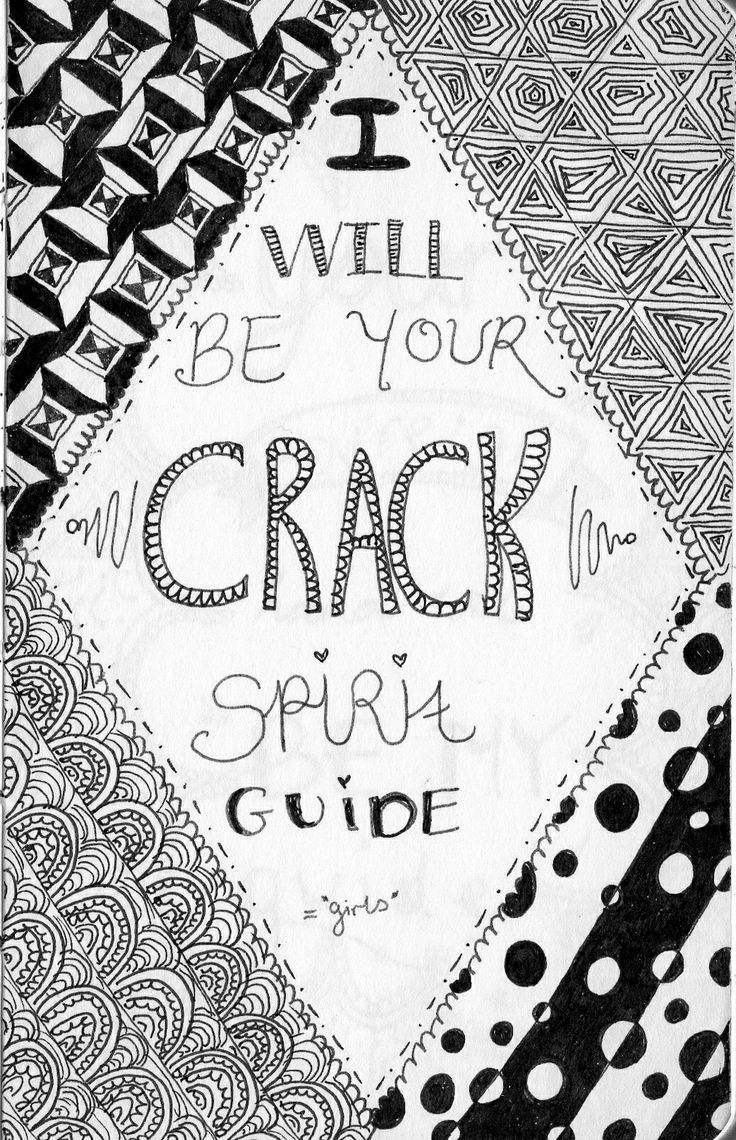 I
WILL
BE YOUR
CRACK
SPIRIT
GUIDE
= "girls"